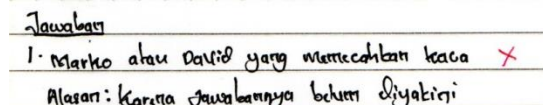 Jawaban
1. Marko atau David yang memecahkan kaca X
Alasan: Karena Jawabannya belum diyakini